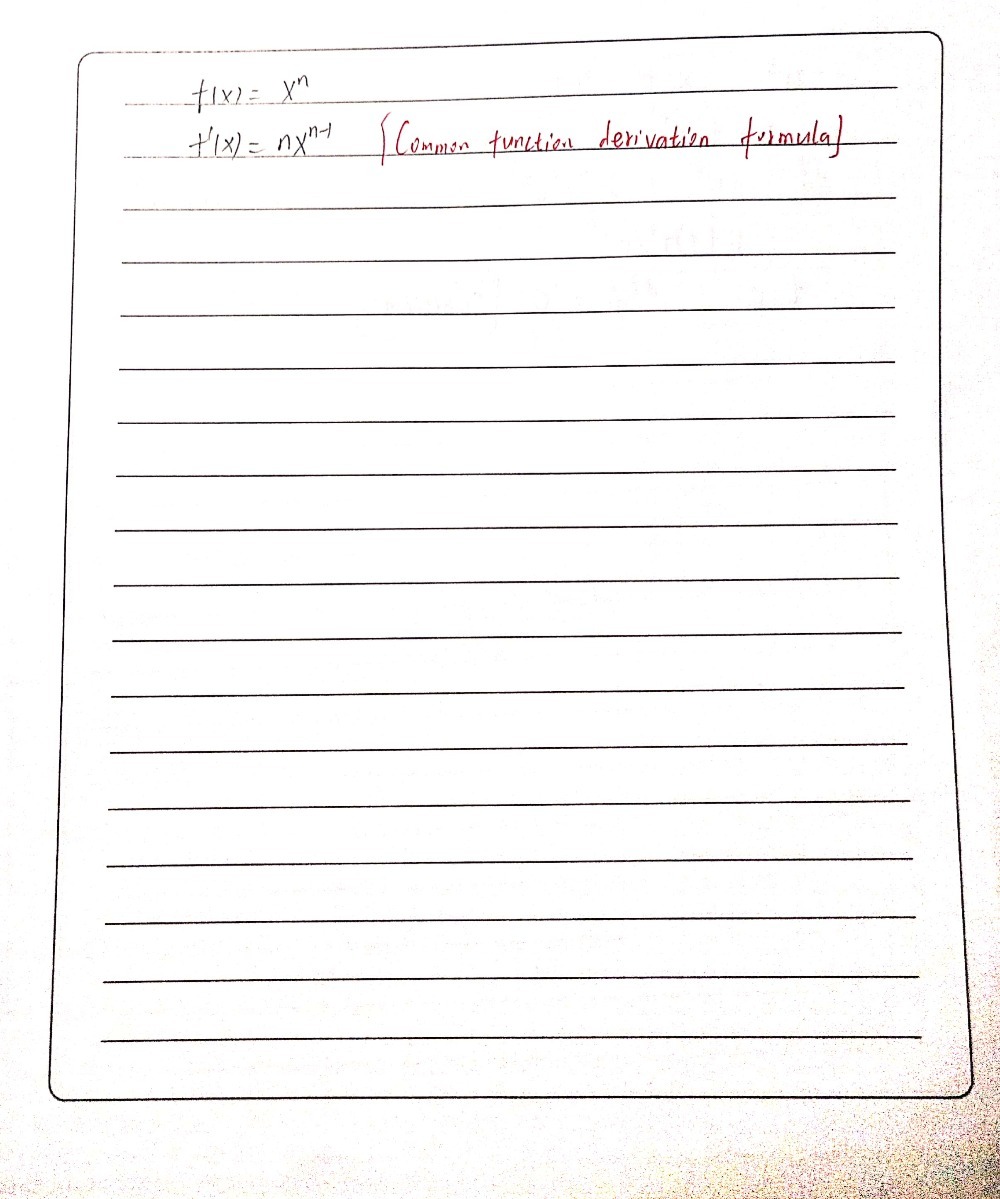 f(x) = xⁿ
f'(x) = nxⁿ⁻¹ [Common function derivation formula]